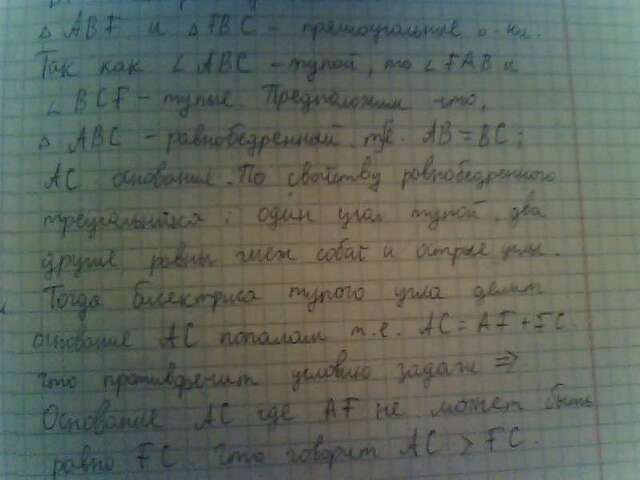 △ ABF и △ FBC - прямоугольные
Так как ∠ ABC - тупой, то ∠ FAB и
∠ BCF - тупые. Предположим что,
△ ABC - равнобедренный т.е. AB = BC;
AC основание. По свойству равнобедренного
треугольника: один угол тупой, два
другие равны меж собой и острые углы.
Тогда биссектриса тупого угла делит
основание AC пополам т.е. AC = AF + FC.
что противоречит условию задачи ⇒
Основание AC где AF не может быть
равно FC. Что говорит AC > FC.